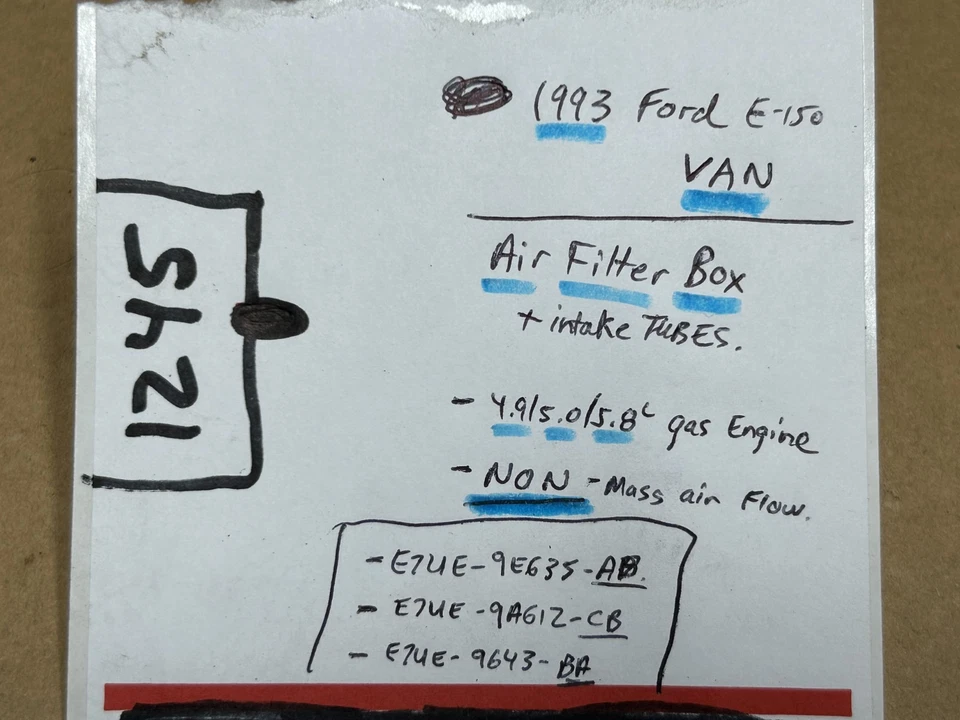 1993 Ford E-150
VAN
Air Filter Box
+ intake TUBES.
- 4.9/5.0/5.8L gas Engine
- NON - Mass air Flow.
- E7UE-9E635-AB.
- E7UE-9A612-CB
- E7UE-9643-BA
1245